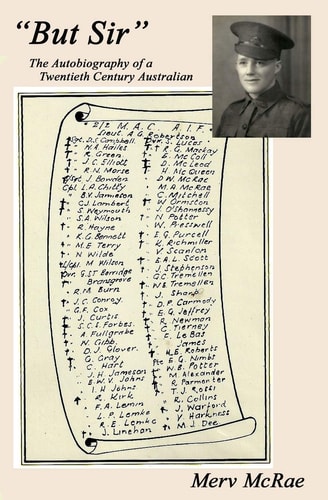 "But Sir"
The Autobiography of a
Twentieth Century Australian
2/2 M.A.C. A.I.F.
Lieut. A.G. Robertson
Sgt. D.S. Campbell
H.R. Hailes
J. Green
J.C. Elliott
R.N. Morse
J. Bowden
Cpl. L.A. Chitty
B.V. Jamieson
C.J. Lambert
S. Neymouth
S.A. Wilson
R. Hayne
K.G. Bennett
M.E. Terry
N. Wilde
L/Cpl. M. Wilson
Dvr. G.ST Berridge
Bransgrove
R.M. Burn
J.C. Conroy
G.F. Cox
J. Curtis
S.C.E. Forbes
A. Fullgrabe
N. Gibb
D.J. Glover
G. Gray
C. Hart
J.H. Jameson
E.W.V. Johns
I.H. Johns
R. Kirk
F.A. Lemin
L.P. Lemke
R.E. Lemke
J. Linehan
Dvr. S. Lucas
R.G. Mackay
G. McColl
D. McLeod
H. McQueen
D.W. McRae
M.A. McRae
C. Mitchell
W. Ormston
J. O'Shannessy
N. Potter
W. Presswell
E.G. Purcell
K. Richmiller
V. Scanlon
E.A.L. Scott
J. Stephenson
G.C. Tremellen
N.S. Tremellen
J. Sharp
D.P. Carmody
E.G. Jeffrey
R. Newman
C. Tierney
E. Le Bas
James
H.E. Roberts
Pte E.G. Nimbs
W.B. Potter
M. Alexander
R. Parmenter
T.J. Rossi
R. Collins
J. Warford
V. Harkness
M.J. Dee
Merv McRae